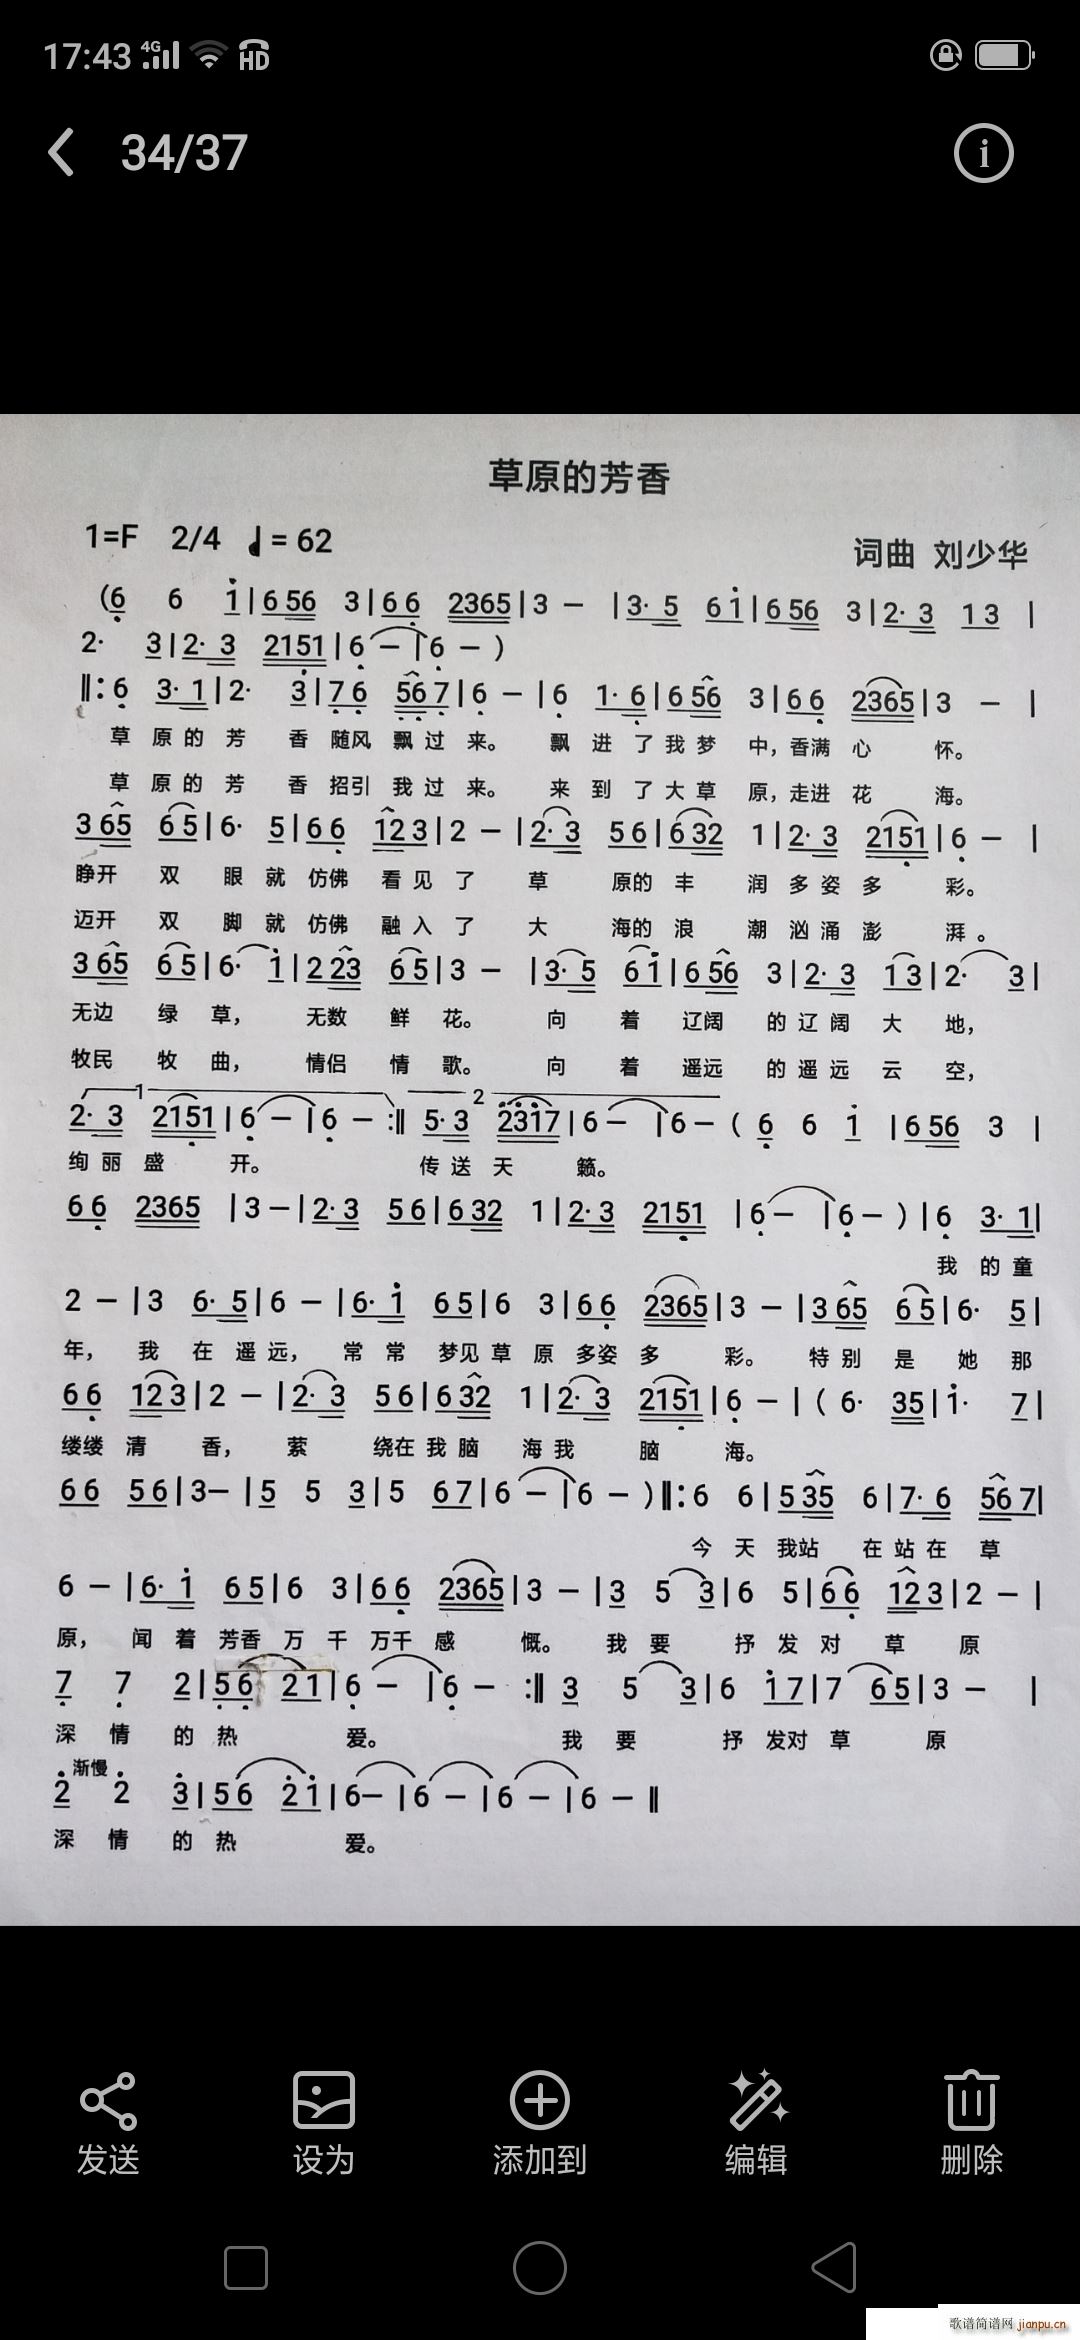 17:43 4G HD
34/37
草原的芳香
1=F 2/4 ♩= 62
词曲 刘少华
(6 6 1|6 56 3|6 6 2365|3 – |3· 5 6 1|6 56 3|2· 3 1 3 |
2· 3|2· 3 2151|6 – |6 – )
‖: 6 3· 1|2· 3|7 6 56 7|6 – |6 1· 6|6 56 3|6 6 2365|3 – |
草 原 的 芳 香 随风 飘 过 来。 飘 进 了 我 梦 中，香满 心 怀。
草 原 的 芳 香 招引 我 过 来。 来 到 了 大 草 原，走进 花 海。
3 65 6 5|6· 5|6 6 12 3|2 – |2· 3 5 6|6 32 1|2· 3 2151|6 – |
睁开 双 眼 就 仿佛 看 见 了 草 原的 丰 润 多 姿 多 彩。
迈开 双 脚 就 仿佛 融 入 了 大 海的 浪 潮 汹 涌 澎 湃。
3 65 6 5|6· 1|2 23 6 5|3 – |3· 5 6 1|6 56 3|2· 3 1 3|2· 3|
无边 绿 草， 无数 鲜 花。 向 着 辽阔 的 辽 阔 大 地，
牧民 牧 曲， 情侣 情 歌。 向 着 遥远 的 遥 远 云 空，
1 2
2· 3 2151|6 – |6 – :‖ 5· 3 2317|6 – |6 – ( 6 6 1 |6 56 3 |
绚 丽 盛 开。 传 送 天 籁。
6 6 2365 |3 – |2· 3 5 6|6 32 1|2· 3 2151 |6 – |6 – ) |6 3· 1|
我 的 童
2 – |3 6· 5|6 – |6· 1 6 5|6 3|6 6 2365|3 – |3 65 6 5|6· 5|
年， 我 在 遥 远， 常 常 梦见 草 原 多姿 多 彩。 特 别 是 她 那
6 6 12 3|2 – |2· 3 5 6|6 32 1|2· 3 2151|6 – |( 6· 35|1· 7|
缕缕 清 香， 萦 绕在 我 脑 海 我 脑 海。
6 6 5 6|3– |5 5 3|5 6 7|6 – |6 – )‖: 6 6|5 35 6|7· 6 56 7|
今 天 我站 在 站 在 草
6 – |6· 1 6 5|6 3|6 6 2365|3 – |3 5 3|6 5|6 6 12 3|2 – |
原， 闻 着 芳香 万 千 万千 感 慨。 我 要 抒 发 对 草 原
7 7 2|5 6 2 1|6 – |6 – :‖ 3 5 3|6 1 7|7 6 5|3 – |
深 情 的 热 爱。 我 要 抒 发对 草 原
渐慢
2 2 3|5 6 2 1|6– |6 – |6 – |6 – ‖
深 情 的 热 爱。
发送 设为 添加到 编辑 删除
歌谱简谱网 jianpu.cn